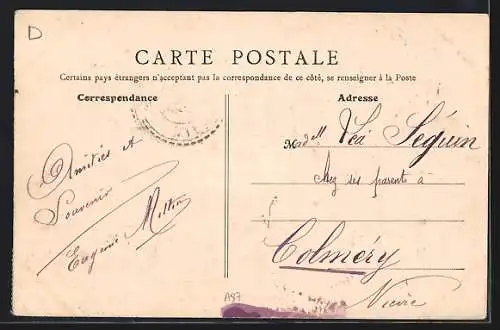 D
CARTE POSTALE
Certains pays étrangers n'acceptant pas la correspondance de ce côté, se renseigner à la Poste
Correspondance
Adresse
Amitiés et
Souvenir
Eugénie
Mad^ll Séguin
chez ses parents à
Colméry
Nièvre
A97